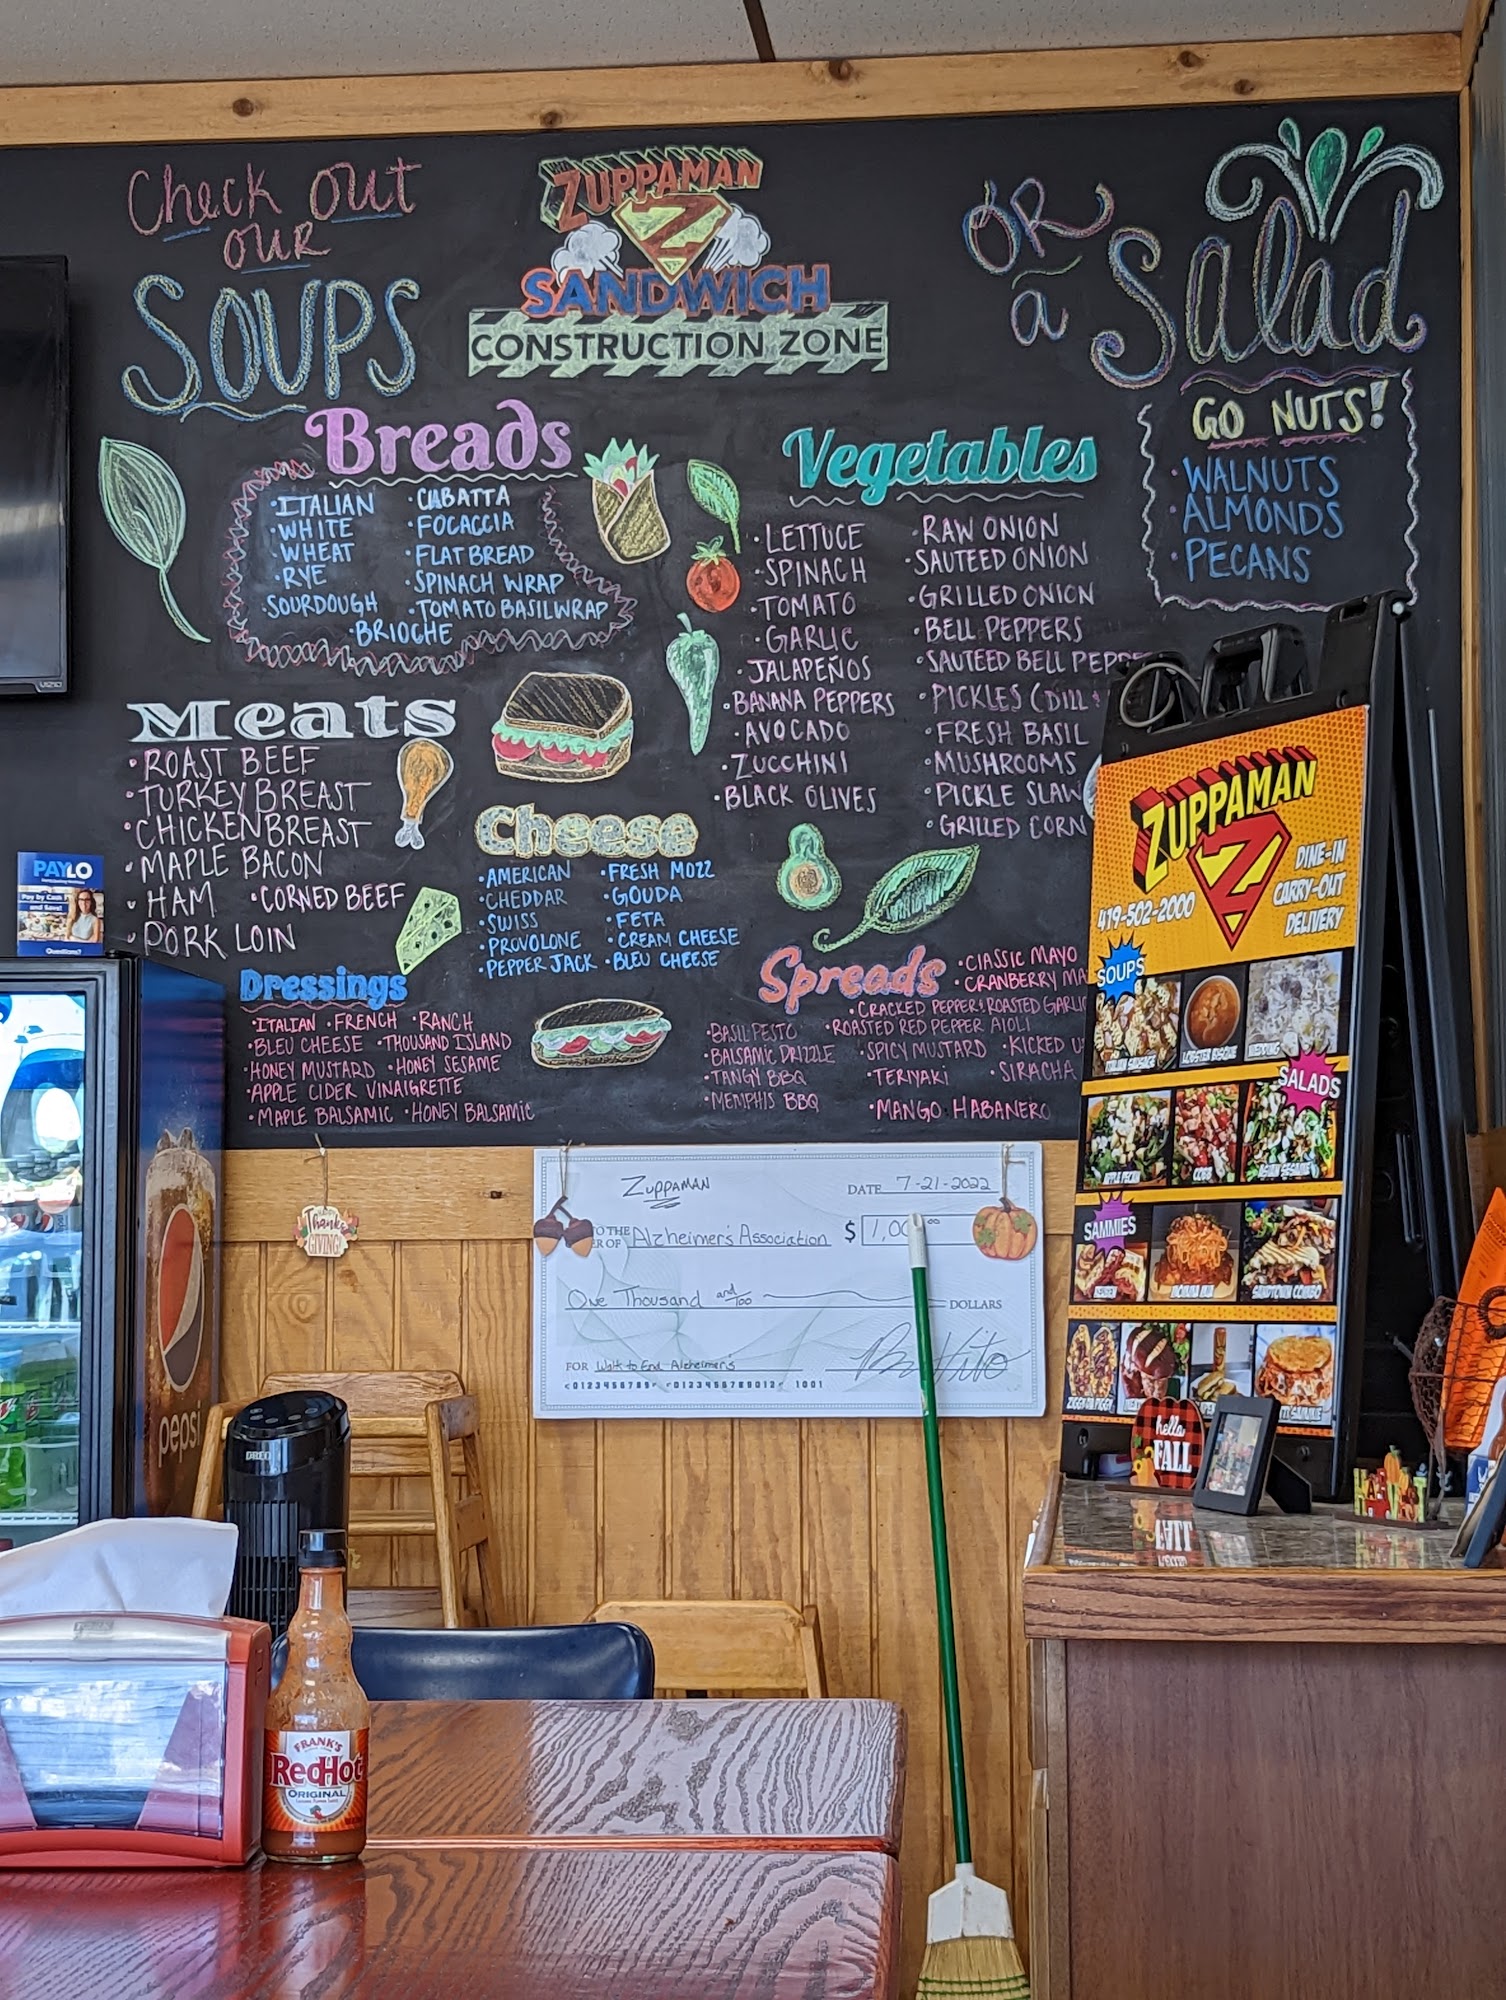 Check out
our
SOUPS
ZUPPAMAN
Z
SANDWICH
CONSTRUCTION ZONE
OR
a
Salad
GO NUTS!
• WALNUTS
• ALMONDS
• PECANS
Breads
• ITALIAN
• WHITE
• WHEAT
• RYE
• SOURDOUGH
• CIABATTA
• FOCACCIA
• FLAT BREAD
• SPINACH WRAP
• TOMATO BASIL WRAP
• BRIOCHE
Vegetables
• LETTUCE
• SPINACH
• TOMATO
• GARLIC
• JALAPEÑOS
• BANANA PEPPERS
• AVOCADO
• ZUCCHINI
• BLACK OLIVES
• RAW ONION
• SAUTEED ONION
• GRILLED ONION
• BELL PEPPERS
• SAUTEED BELL
• PICKLES (DILL
• FRESH BASIL
• MUSHROOMS
• PICKLE SLAW
• GRILLED CORN
Meats
• ROAST BEEF
• TURKEY BREAST
• CHICKEN BREAST
• MAPLE BACON
• HAM • CORNED BEEF
• PORK LOIN
Cheese
• AMERICAN
• CHEDDAR
• SWISS
• PROVOLONE
• PEPPER JACK
• FRESH MOZZ
• GOUDA
• FETA
• CREAM CHEESE
• BLEU CHEESE
Dressings
• ITALIAN • FRENCH • RANCH
• BLEU CHEESE • THOUSAND ISLAND
• HONEY MUSTARD • HONEY SESAME
• APPLE CIDER VINAIGRETTE
• MAPLE BALSAMIC • HONEY BALSAMIC
Spreads
• CLASSIC MAYO
• CRANBERRY
• CRACKED PEPPER & ROASTED GARLIC
• BASIL PESTO • ROASTED RED PEPPER AIOLI
• BALSAMIC DRIZZLE • SPICY MUSTARD • KICKED
• TANGY BBQ • TERIYAKI • SIRACHA
• MEMPHIS BBQ • MANGO HABANERO
VIZIO
PAYLO
Pay by Cash
and Save!
Questions?
pepsi
HAPPY
Thanks
GIVING!
ZUPPAMAN
DATE 7-21-2022
TO THE
OF Alzheimer's Association $
One Thousand and /100 DOLLARS
FOR Walk to End Alzheimer's
1001
ZUPPAMAN
Z
419-502-2000
DINE-IN
CARRY-OUT
DELIVERY
SOUPS
ITALIAN SAUSAGE
LOBSTER BISQUE
WEDDING
SALADS
APPLE PECAN
COBB
ASIAN SESAME
SAMMIES
REUBEN
MOMMA MIA
SANDTOWN COMBO
ZIGGY THE PIGGY
hello
FALL
DREO
FRANK'S
RedHot
ORIGINAL